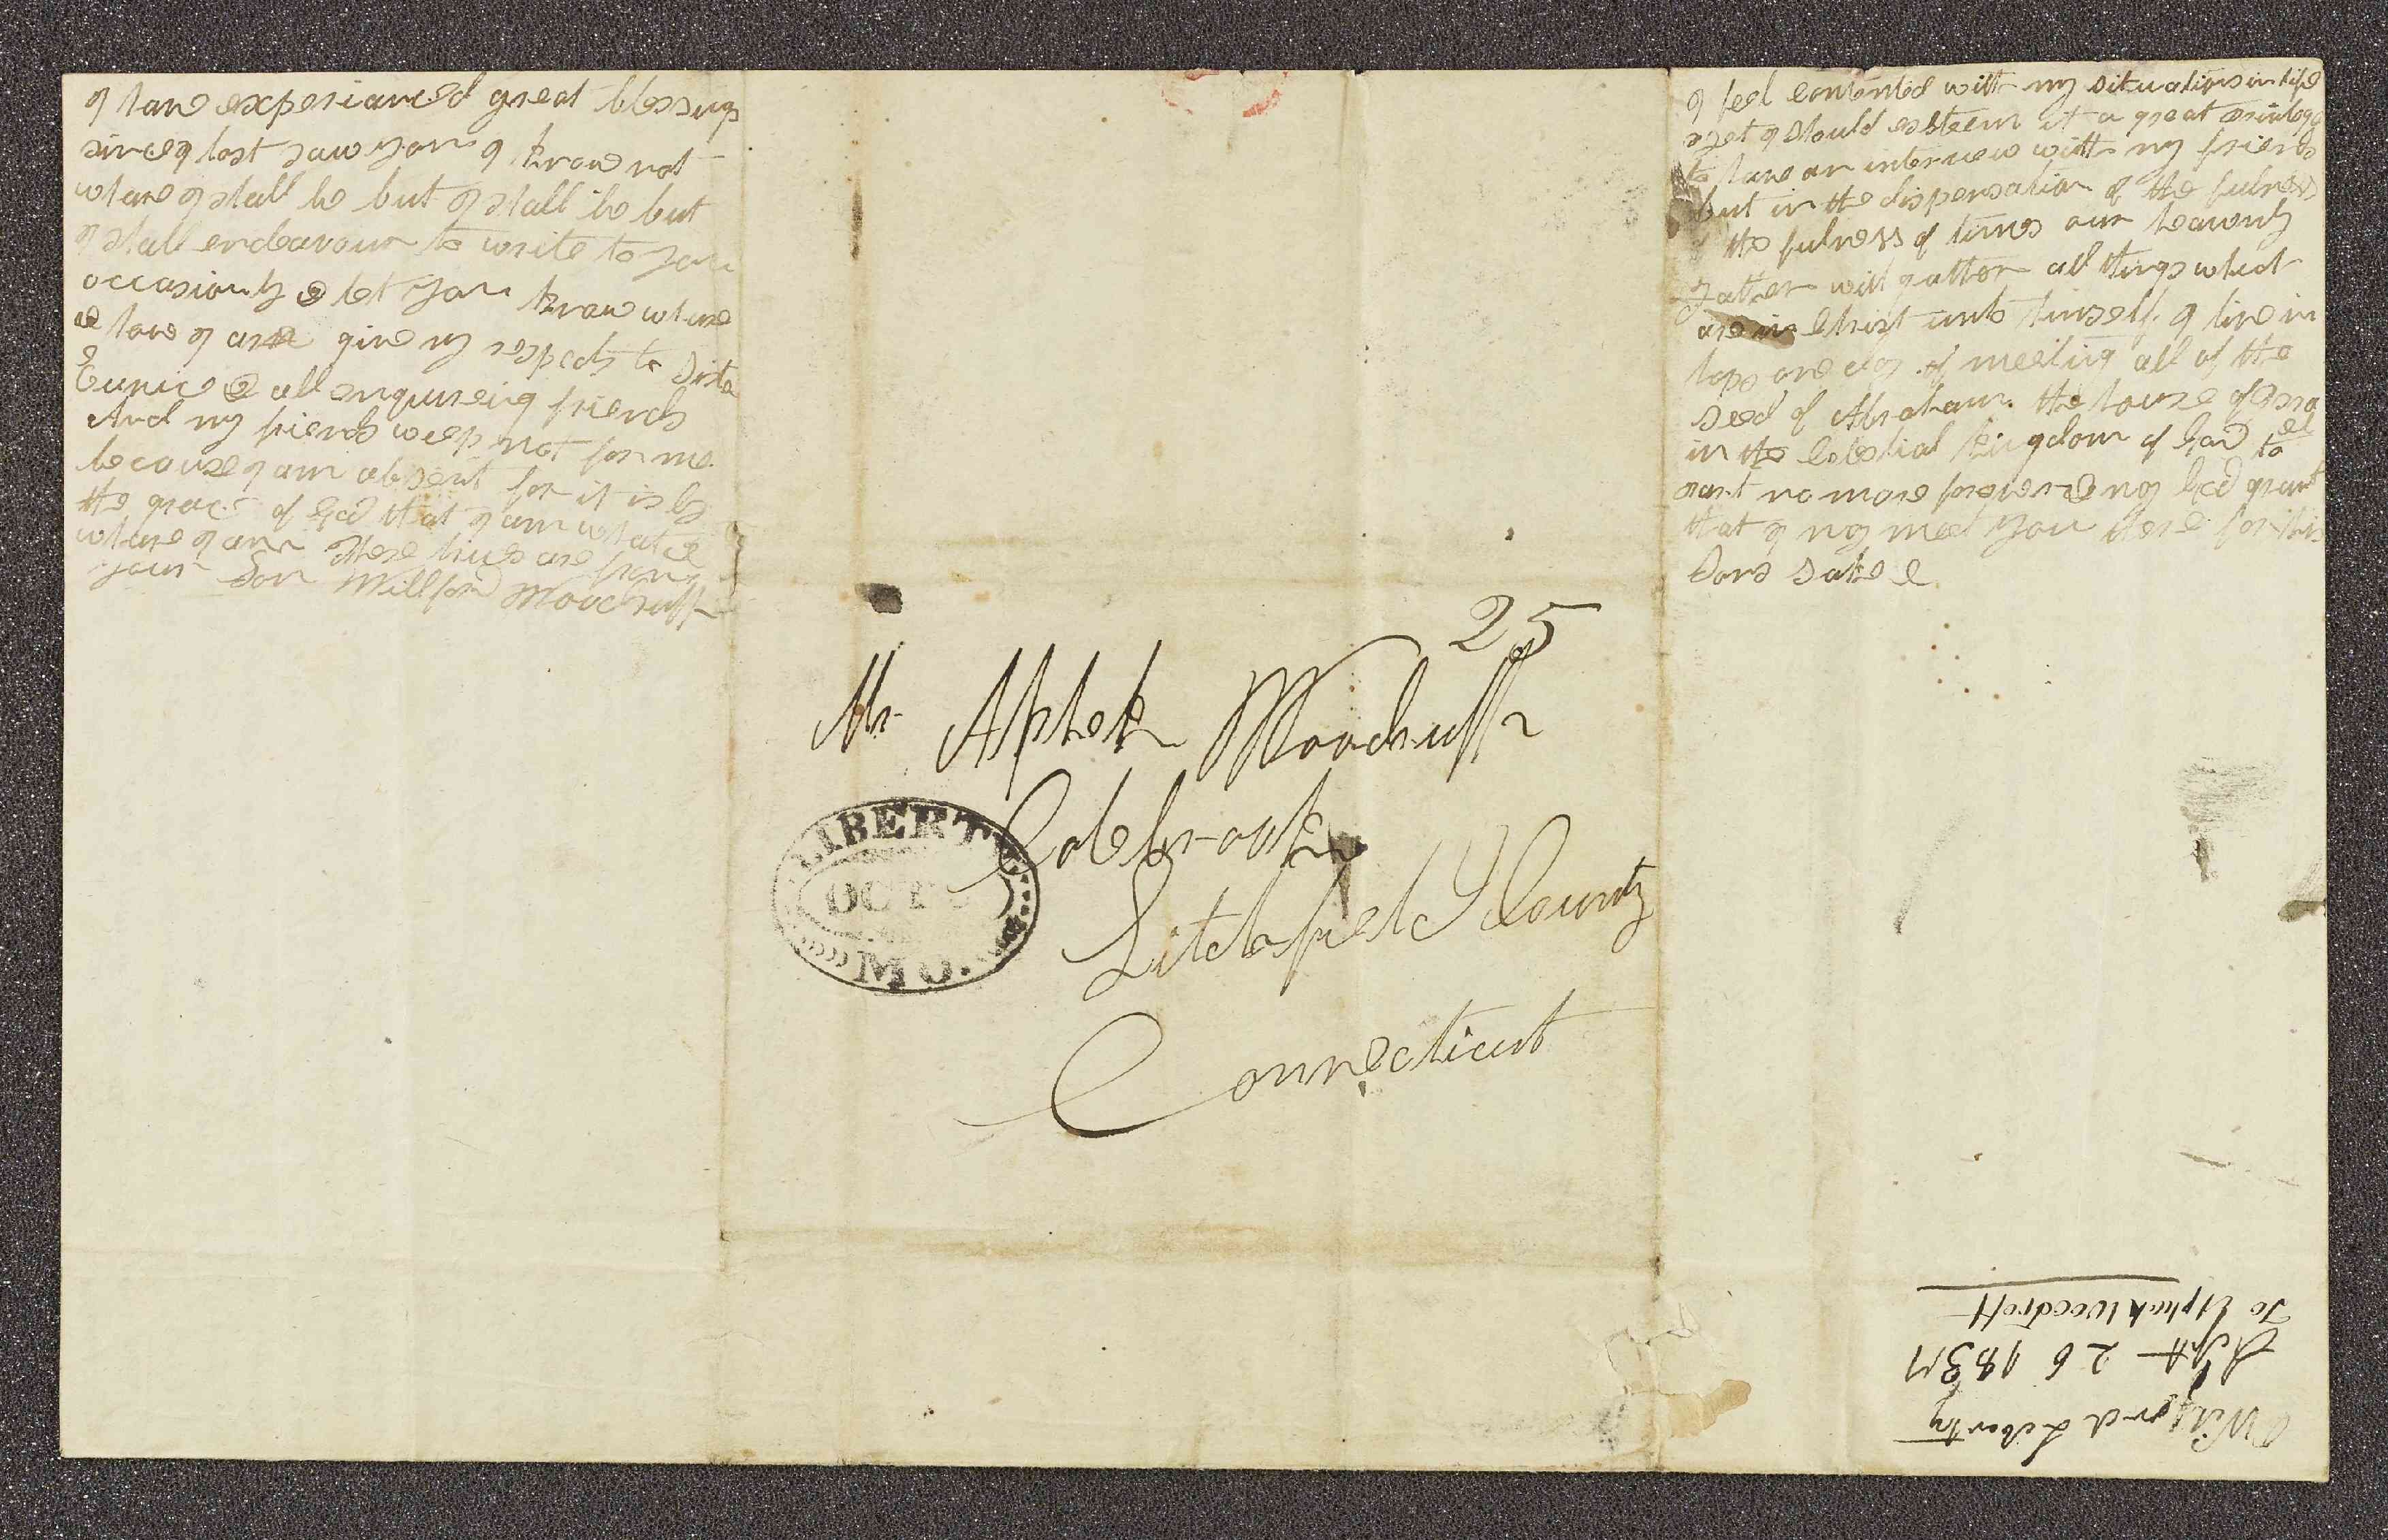 I have experianced great blessings
since I last saw you I know not
whare I shall be but I shall be but
I shall endeavour to write to you
occasionly & let you know whare
& how I am give my respects to Sister
Eunice & all enquireing friends
And my friends weep not for me
because I am absent for it is by
the grace of God that I am what &
whare I am These lines are from
your Son Willford Woodruff
25
Mr Aphek Woodruff
Colebrook
Litchfield County
Connecticut
LIBERTY
OCT
MO.
I feel contented with my situation in life
& yet I should esteem it a great privlege
to have an interview with my friends
but in the dispensation of the fulness
of the fulness of times our heavenly
Father will gather all things which
are in Christ unto himself. I live in
hope one day of meeting all of the
seed of Abraham the house of Isra
el
in the Celestial Kingdom of God to
part no more forever & may God grant
that I may meet you there for his
Sons sake
Wilford Liberty
Sept 26 1834
To Aphek Woodroff